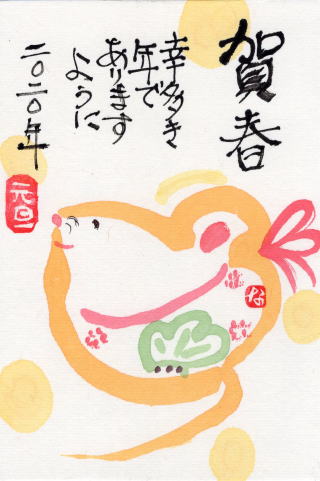 賀春
幸多き
年で
あります
ように
二〇二〇年
元旦
な